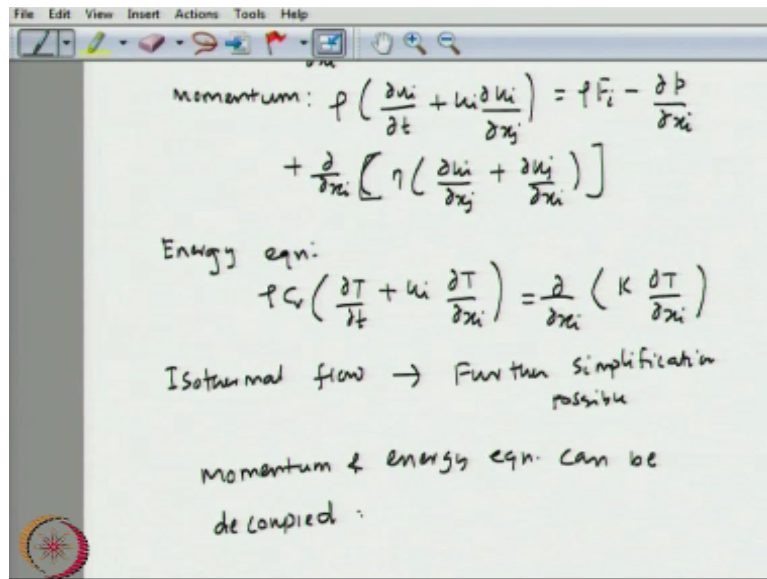 File Edit View Insert Actions Tools Help
Momentum: ρ ( ∂ui/∂t + ui ∂ui/∂xj ) = ρFi - ∂p/∂xi
+ ∂/∂xi [ η ( ∂ui/∂xj + ∂uj/∂xi ) ]
Energy eqn:
ρCv ( ∂T/∂t + ui ∂T/∂xi ) = ∂/∂xi ( K ∂T/∂xi )
Isothermal flow → Further simplification
possible
momentum & energy eqn. can be
decoupled .